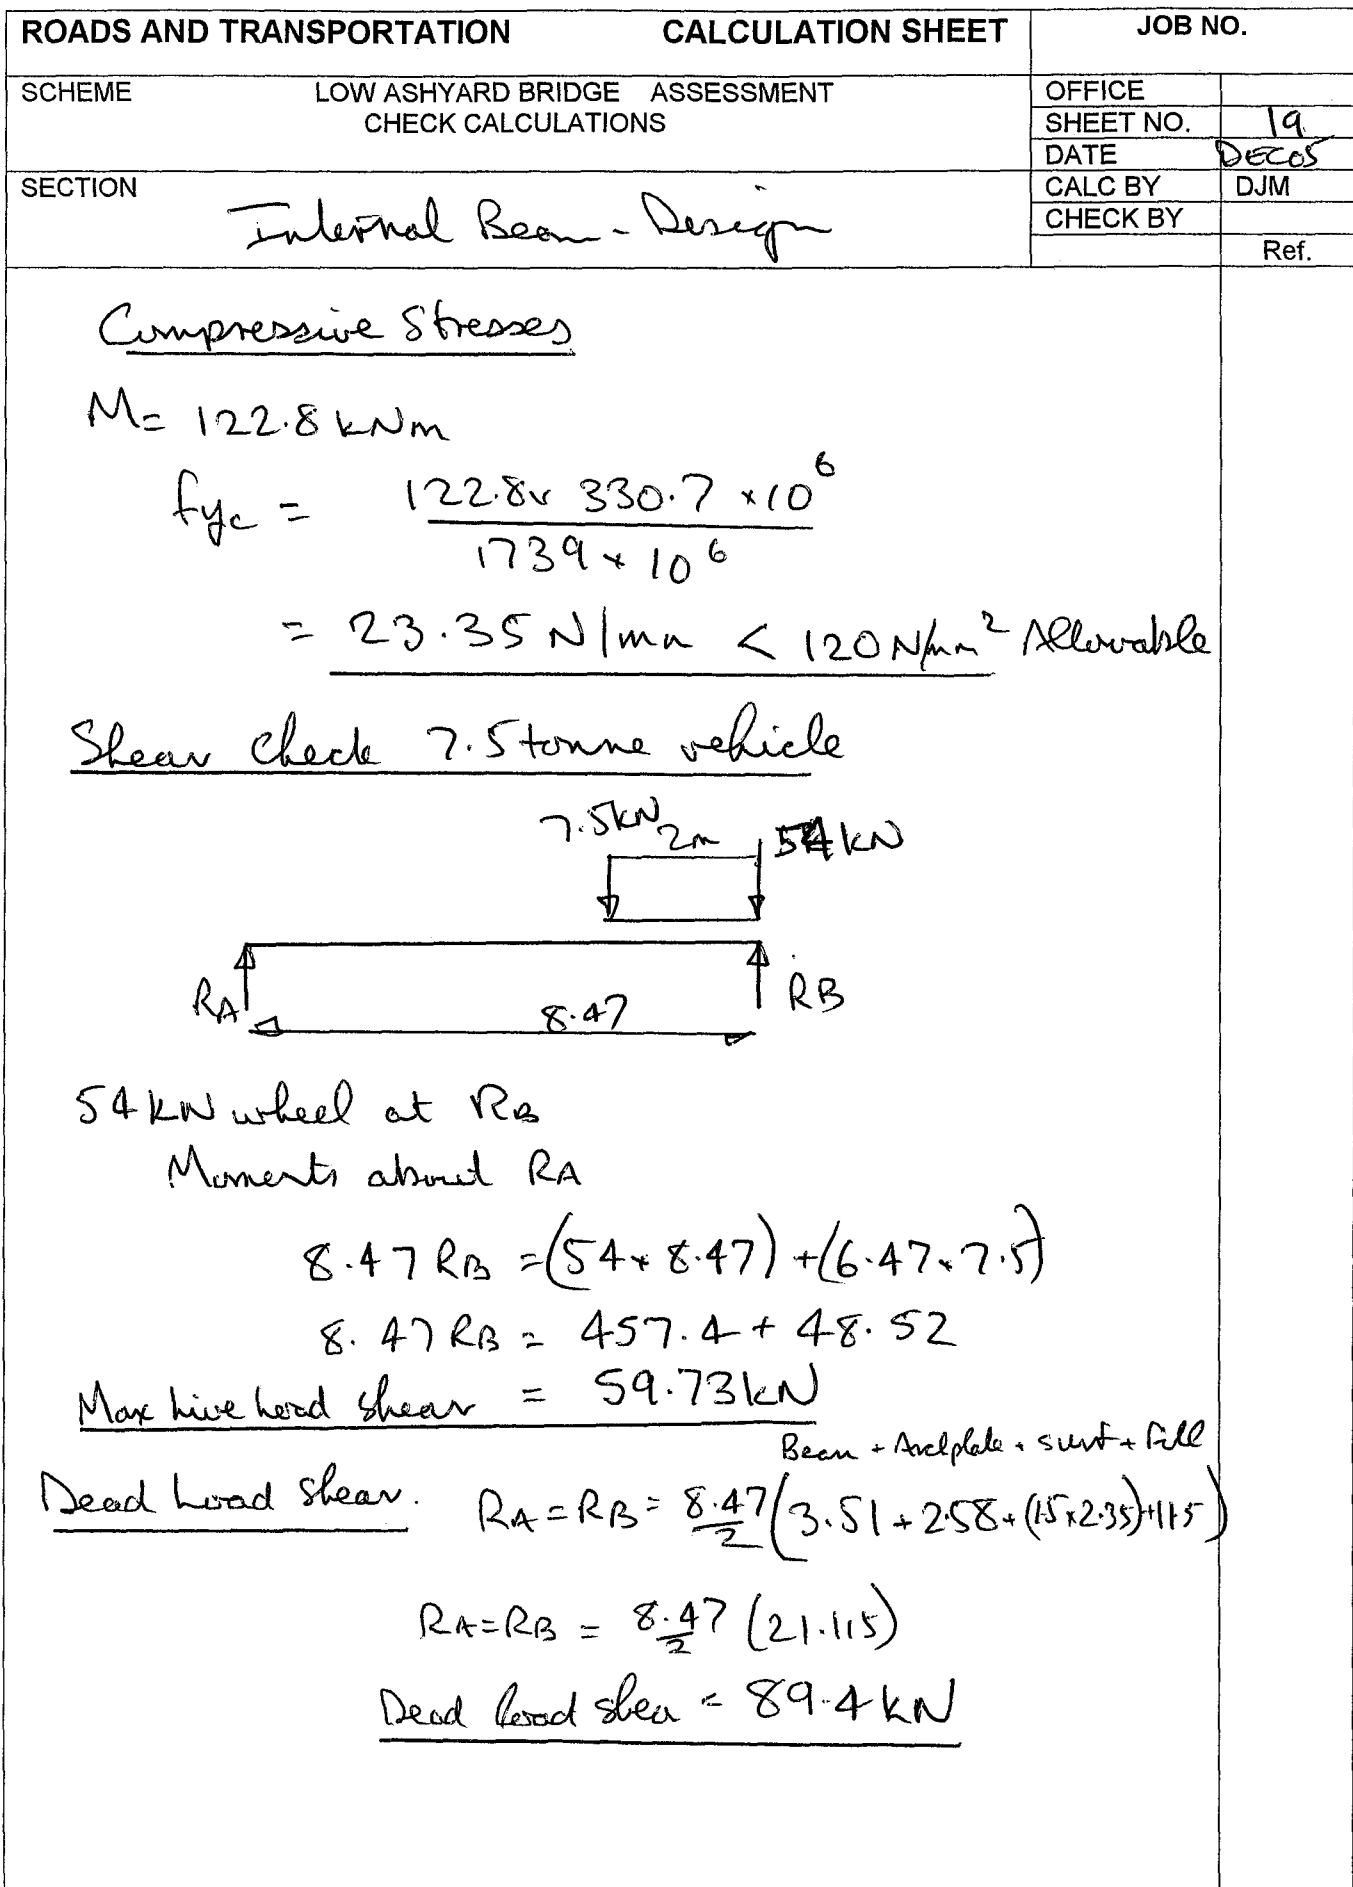 ROADS AND TRANSPORTATION CALCULATION SHEET JOB NO.
SCHEME LOW ASHYARD BRIDGE ASSESSMENT
CHECK CALCULATIONS
OFFICE
SHEET NO. 19
DATE DEC05
SECTION Internal Beam - Design
CALC BY DJM
CHECK BY
Ref.
Compressive Stresses
M= 122.8 kNm
fyc = 122.8 x 330.7 x 10^6
1739 x 10^6
= 23.35 N/mm < 120 N/mm² Allowable
Shear Check 7.5 tonne vehicle
7.5kN 2m 54 kN
RA 8.47 RB
54 kN wheel at RB
Moments about RA
8.47 RB = (54 x 8.47) + (6.47 x 7.5)
8.47 RB = 457.4 + 48.52
Max live load shear = 59.73 kN
Beam + Arch plate + surf + fill
Dead load shear. RA = RB = 8.47/2 (3.51 + 2.58 + (1.5 x 2.35) + 11.5)
RA = RB = 8.47/2 (21.115)
Dead load shear = 89.4 kN